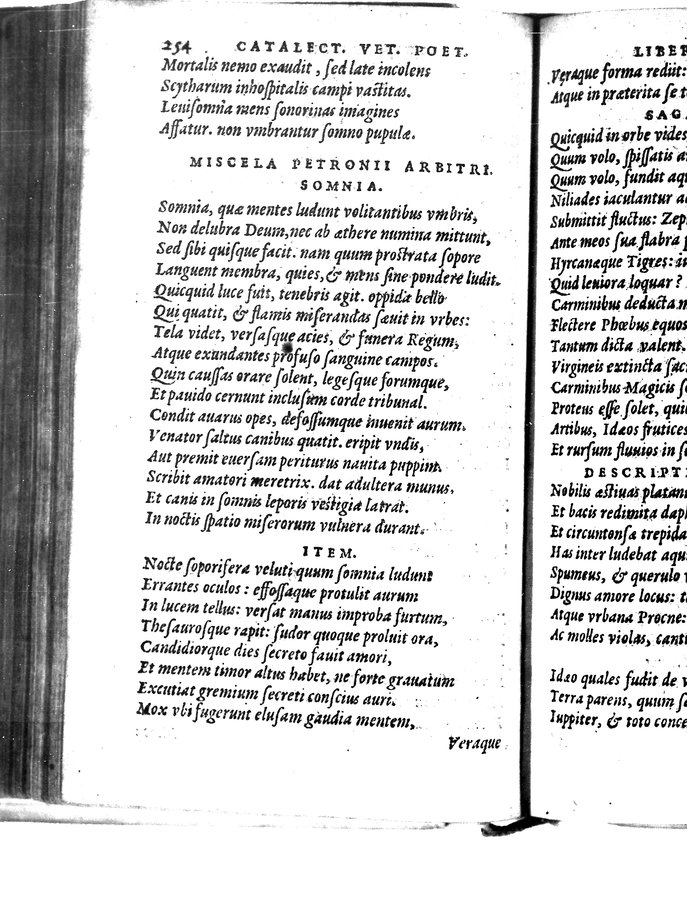 254 CATALECT. VET. POET.
Mortalis nemo exaudit, ſed late incolens
Scytharum inhoſpitalis campi vaſtitas.
Leuiſomna mens ſonorinas imagines
Aſſatur. non vmbrantur ſomno pupulæ.
MISCELA PETRONII ARBITRI.
SOMNIA.
Somnia, quæ mentes ludunt volitantibus vmbris,
Non delubra Deum, nec ab æthere numina mittunt,
Sed ſibi quiſque facit. nam quum proſtrata ſopore
Languent membra, quies, & mens ſine pondere ludit.
Quicquid luce fuit, tenebris agit. oppida bello
Qui quatit, & flamis miſerandas ſæuit in vrbes:
Tela videt, verſaſque acies, & funera Regum,
Atque exundantes profuſo ſanguine campos.
Quin cauſſas orare ſolent, legeſque forumque,
Et pauido cernunt incluſum corde tribunal.
Condit auarus opes, defoſſumque inuenit aurum.
Venator ſaltus canibus quatit. eripit vndis,
Aut premit euerſam periturus nauita puppim.
Scribit amatori meretrix. dat adultera munus,
Et canis in ſomnis leporis veſtigia latrat.
In noctis ſpatio miſerorum vulnera durant.
ITEM.
Nocte ſoporiferæ veluti quum ſomnia ludunt
Errantes oculos: effoſſaque protulit aurum
In lucem tellus: verſat manus improba furtum,
Theſauroſque rapit: ſudor quoque proluit ora,
Candidiorque dies ſecreto fauit amori,
Et mentem timor altus habet, ne forte grauatum
Excutiat gremium ſecreti conſcius auri.
Mox vbi fugerunt eluſam gaudia mentem,
Veraque
LIBER
Veraque forma rediit:
Atque in præterita ſe
SAGA
Quicquid in orbe vides
Quum volo, ſpiſſatis
Quum volo, fundit
Niliades iaculantur
Submittit fluctus:
Ante meos ſua flabra
Hyrcanæque Tigres:
Quid leuiora loquar?
Carminibus deducta
Flectere Phœbus equos
Tantum dicta valent.
Virgineis extincta
Carminibus Magicis
Proteus eſſe ſolet,
Artibus, Idæos frutices
Et rurſum fluuios in
DESCRIPT
Nobilis æſtiuas
Et bacis redimita
Et circuntonſa
Has inter ludebat
Spumeus, & querulo
Dignus amore locus:
Atque vrbana Procne:
Ac molles violas,
Idæo quales fudit de
Terra parens, quum
Iuppiter, & toto